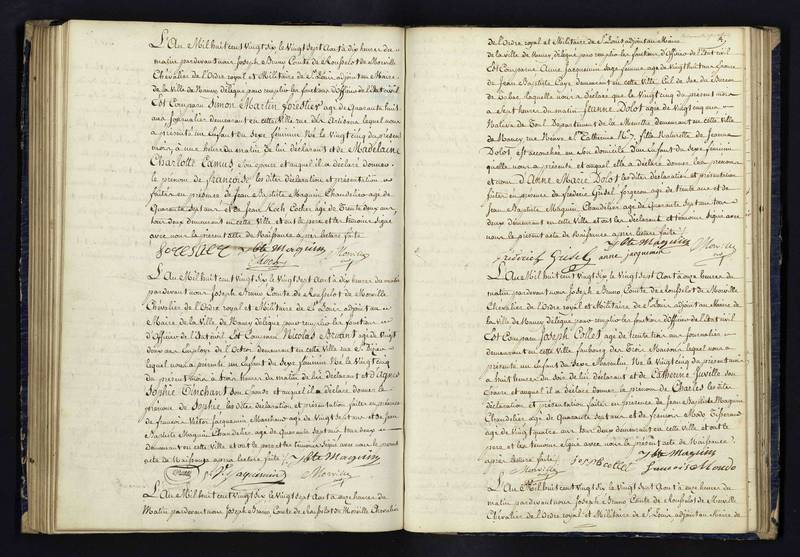 L'An Mil huit cent Vingt six, le Vingt sept Aout à dix heures du
matin pardevant nous Joseph Bruno Comte de Rousselot de Morville
Chevalier de l'Ordre royal et Militaire de St Louis adjoint au Maire
de la Ville de Nancy délégué pour remplir les fonctions d'Officier de l'Etat civil
Est Comparu Simon Martin Forestier agé de Quarante huit
ans Journalier demeurant en cette Ville rue lequel nous
a présenté un Enfant du Sexe féminin Né le Vingt cinq du présent
mois, à une heure du matin de lui déclarant et de Madelaine
Charlotte Camus son Epouse et auquel il a déclaré donner
le prénom de françoise les dites déclaration et présentation
faites en présence de Jean Baptiste Maguin Chandelier agé de
Quarante Sept ans et de Jean Koch Cocher agé de Trente deux ans,
tous deux demeurant en cette Ville et ont le pere et les témoins signé
avec nous le présent acte de Naissance après lecture faite
forestier Jbte Maguin Morville
Koch
L'An Mil huit cent Vingt six le Vingt sept Aout à dix heures du matin
pardevant nous Joseph Bruno Comte de Rousselot de Morville
Chevalier de l'Ordre royal et Militaire de St Louis adjoint au
Maire de la Ville de Nancy délégué pour remplir les fonctions
d'Officier de l'Etat civil Est Comparu Nicolas Bruant agé de Vingt
deux ans Employé de l'Octroi demeurant en cette Ville rue St Dizier
lequel nous a présenté un Enfant du Sexe féminin Né le Vingt cinq
du présent mois à trois heures du matin de lui déclarant et d'Agnes
Sophie Tinchant son Epouse et auquel il a déclaré donner le
prénom de Sophie les dites déclaration et présentation faites en présence
de francois Victor Jacquemin Marchand agé de Vingt sept ans et de Jean
Baptiste Maguin Chandelier agé de quarante sept ans tous deux
demeurant en cette Ville et ont le pere et les témoins signé avec nous le présent
acte de Naissance après lecture faite Jbte Maguin
Vr Jacquemin Morville
L'An Mil huit cent Vingt six le Vingt sept Aout à onze heures du
Matin pardevant nous Joseph Bruno Comte de Rousselot de Morville Chevalier
de l'Ordre royal et Militaire de St Louis adjoint au Maire
de la ville de Nancy délégué pour remplir les fonctions d'Officier de l'Etat civil
Est Comparue Anne Jacquemin Sage femme agée de Vingt huit ans femme
de Jean Baptiste Caye demeurant en cette Ville
laquelle nous a déclaré que le Vingt cinq du présent mois
à sept heures du matin Jeanne Dolot agée de Vingt cinq ans
Native de Toul Département de la Meurthe demeurant en cette Ville
de Nancy rue Neuve Ste Catherine No 7, fille Naturelle de Jeanne
Dolot est accouchée en son domicile d'un Enfant du Sexe féminin
qu'elle nous a présenté et auquel elle a déclaré donner les prénoms
et nom d'Anne Marie Dolot les dites déclaration et présentation
faites en présence de frédéric Griset forgeron agé de trente ans et de
Jean Baptiste Maguin Chandelier agé de Quarante Sept ans tous
deux demeurant en cette Ville et ont les déclarant et témoins signé avec
nous le présent acte de Naissance après lecture faite
frederick Griset anne jacquemin Jbte Maguin Morville
L'An Mil huit cent Vingt six le Vingt sept Aout à onze heures du
matin pardevant nous Joseph Bruno Comte de Rousselot de Morville
Chevalier de l'Ordre royal et Militaire de St Louis adjoint au Maire de
la Ville de Nancy délégué pour remplir les fonctions d'Officier de l'Etat civil
Est Comparu Joseph Collot agé de trente trois ans Journalier
demeurant en cette Ville faubourg des Trois Maisons lequel nous a
présenté un Enfant du Sexe Masculin Né le Vingt cinq du présent mois
à huit heures du soir de lui déclarant et de Catherine Juville son
Epouse et auquel il a déclaré donner le prénom de Charles les dites
déclaration et présentation faites en présence de Jean Baptiste Maguin
Chandelier agé de Quarante Sept ans et de francois Mondo Tisserand
agé de Vingt quatre ans tous deux demeurant en cette Ville et ont le
pere et les témoins signé avec nous le présent acte de Naissance
après lecture faite Jbte Maguin
Morville joseph collot francois Mondo
L'An Mil huit cent Vingt six le Vingt sept Aout à onze heures du
matin pardevant nous Joseph Bruno Comte de Rousselot de Morville
Chevalier de l'Ordre royal et Militaire de St Louis adjoint au Maire de